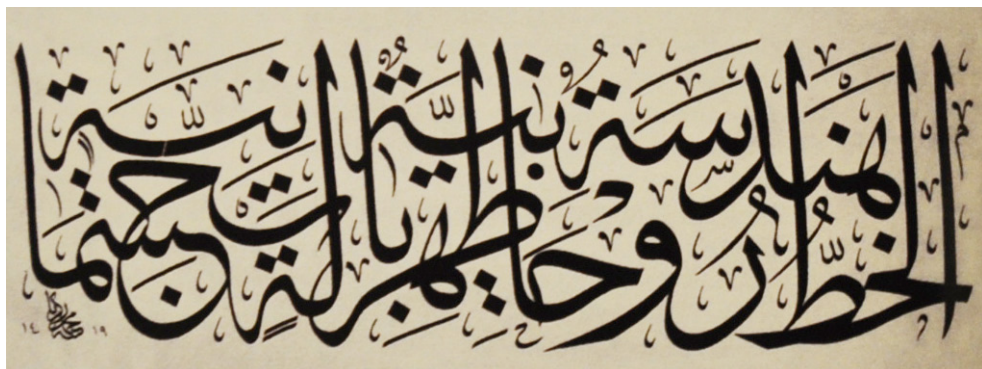 الخطُّ هندسةٌ روحانيّةٌ ظهرت بآلةٍ جسمانيّة
١٤١٩